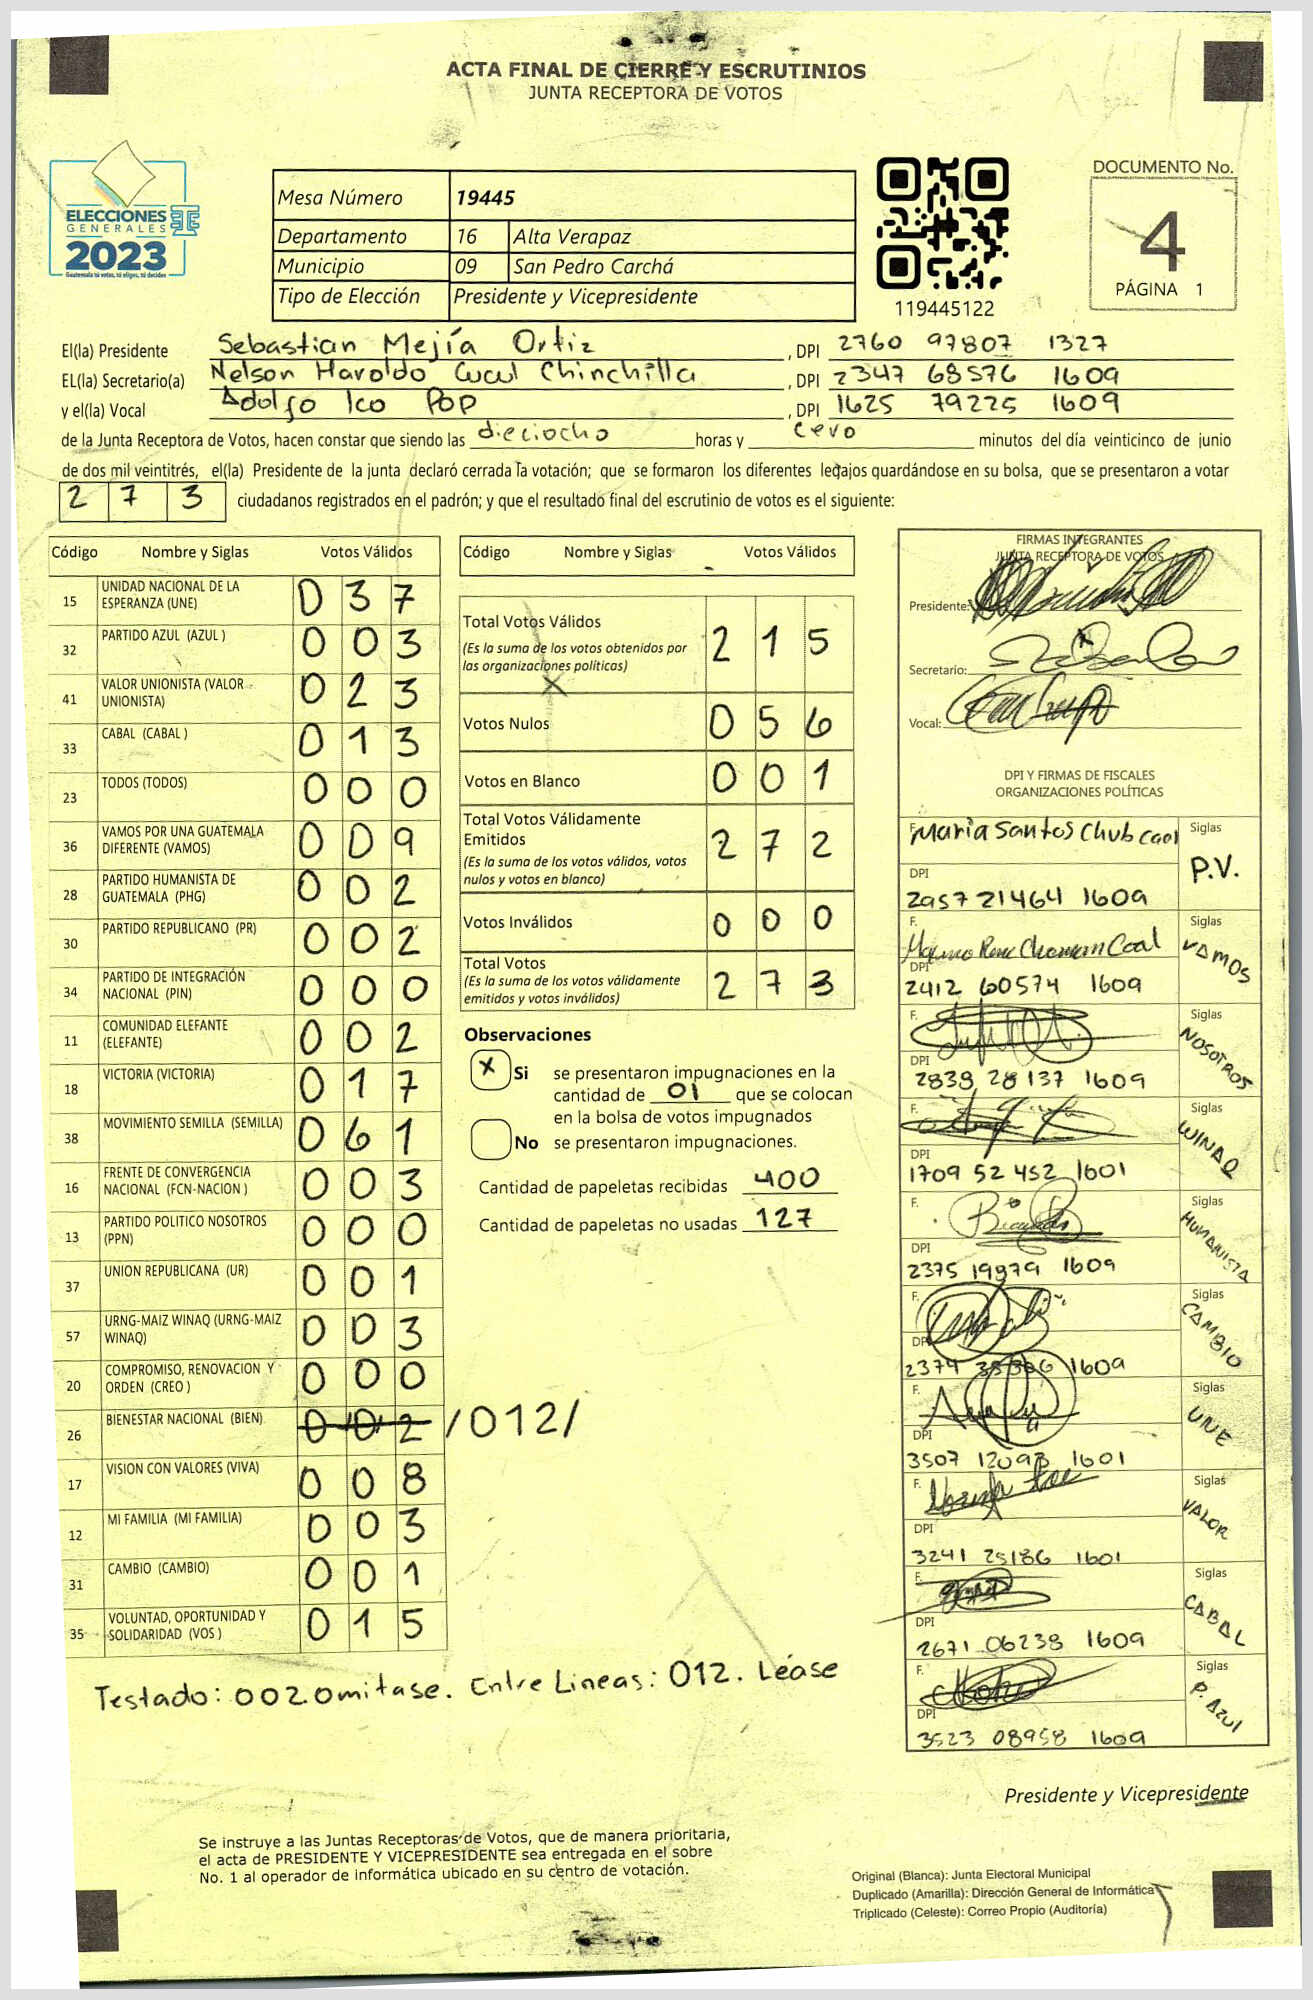 ACTA FINAL DE CIERRE Y ESCRUTINIOS
JUNTA RECEPTORA DE VOTOS
ELECCIONES
GENERALES
2023
Guatemala tú votas, tú eliges, tú decides
Mesa Número 19445
Departamento 16 Alta Verapaz
Municipio 09 San Pedro Carchá
Tipo de Elección Presidente y Vicepresidente
119445122
DOCUMENTO No.
4
PÁGINA 1
El(la) Presidente Sebastian Mejía Ortiz , DPI 2760 97807 1327
EL(la) Secretario(a) Nelson Haroldo Cucul Chinchilla , DPI 2347 68576 1609
y el(la) Vocal Adolfo Ico Pop , DPI 1625 79225 1609
de la Junta Receptora de Votos, hacen constar que siendo las dieciocho horas y cero minutos del día veinticinco de junio
de dos mil veintitrés, el(la) Presidente de la junta declaró cerrada la votación; que se formaron los diferentes legajos guardándose en su bolsa, que se presentaron a votar
273 ciudadanos registrados en el padrón; y que el resultado final del escrutinio de votos es el siguiente:
Código Nombre y Siglas Votos Válidos
15 UNIDAD NACIONAL DE LA ESPERANZA (UNE) 037
32 PARTIDO AZUL (AZUL ) 003
41 VALOR UNIONISTA (VALOR UNIONISTA) 023
33 CABAL (CABAL ) 013
23 TODOS (TODOS) 000
36 VAMOS POR UNA GUATEMALA DIFERENTE (VAMOS) 009
28 PARTIDO HUMANISTA DE GUATEMALA (PHG) 002
30 PARTIDO REPUBLICANO (PR) 002
34 PARTIDO DE INTEGRACIÓN NACIONAL (PIN) 000
11 COMUNIDAD ELEFANTE (ELEFANTE) 002
18 VICTORIA (VICTORIA) 017
38 MOVIMIENTO SEMILLA (SEMILLA) 061
16 FRENTE DE CONVERGENCIA NACIONAL (FCN-NACION ) 003
13 PARTIDO POLITICO NOSOTROS (PPN) 000
37 UNION REPUBLICANA (UR) 001
57 URNG-MAIZ WINAQ (URNG-MAIZ WINAQ) 003
20 COMPROMISO, RENOVACION Y ORDEN (CREO ) 000
26 BIENESTAR NACIONAL (BIEN) 002 /012/
17 VISION CON VALORES (VIVA) 008
12 MI FAMILIA (MI FAMILIA) 003
31 CAMBIO (CAMBIO) 001
35 VOLUNTAD, OPORTUNIDAD Y SOLIDARIDAD (VOS ) 015
Testado: 002. Omitase. Entre Lineas: 012. Léase
Código Nombre y Siglas Votos Válidos
Total Votos Válidos 215
(Es la suma de los votos obtenidos por
las organizaciones políticas)
Votos Nulos 056
Votos en Blanco 001
Total Votos Válidamente
Emitidos 272
(Es la suma de los votos válidos, votos
nulos y votos en blanco)
Votos Inválidos 000
Total Votos 273
(Es la suma de los votos válidamente
emitidos y votos inválidos)
Observaciones
X Si se presentaron impugnaciones en la
cantidad de 01 que se colocan
en la bolsa de votos impugnados
No se presentaron impugnaciones.
Cantidad de papeletas recibidas 400
Cantidad de papeletas no usadas 127
FIRMAS INTEGRANTES
JUNTA RECEPTORA DE VOTOS
Presidente:
Secretario:
Vocal:
DPI Y FIRMAS DE FISCALES
ORGANIZACIONES POLÍTICAS
F. Maria Santos Chub Caal Siglas P.V.
DPI 2957 21464 1609
F. Siglas VAMOS
DPI 2412 60574 1609
F. Siglas NOSOTROS
DPI 2838 28 137 1609
F. Siglas WINAQ
DPI 1709 52 452 1601
F. Siglas HUMANISTA
DPI 2375 19979 1609
F. Siglas CAMBIO
DPI 2374 1609
F. Siglas UNE
DPI 3507 12093 1601
F. Siglas VALOR
DPI 3241 25186 1601
F. Siglas CABAL
DPI 2671 06238 1609
F. Siglas P. AZUL
DPI 3523 08958 1609
Presidente y Vicepresidente
Se instruye a las Juntas Receptoras de Votos, que de manera prioritaria,
el acta de PRESIDENTE Y VICEPRESIDENTE sea entregada en el sobre
No. 1 al operador de informática ubicado en su centro de votación.
Original (Blanca): Junta Electoral Municipal
Duplicado (Amarilla): Dirección General de Informática
Triplicado (Celeste): Correo Propio (Auditoría)